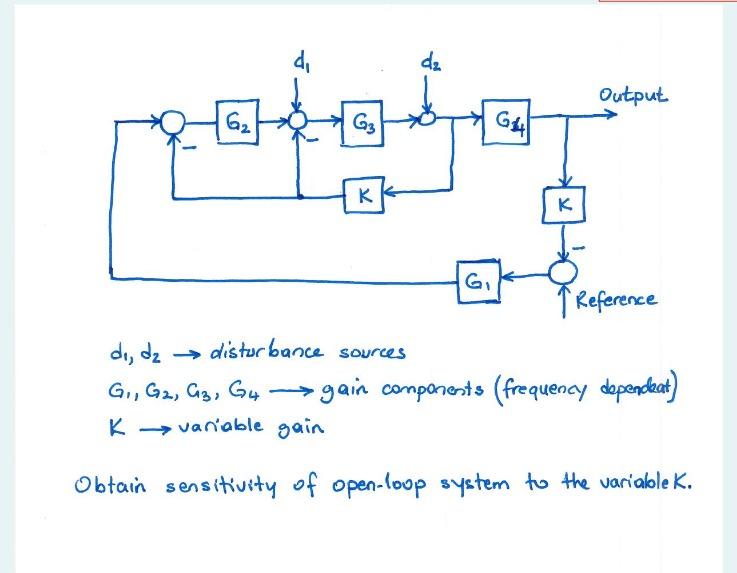 d₁ d₂
Output
G₂ G₃ G4
K K
G₁
Reference
d₁, d₂ → disturbance sources
G₁, G₂, G₃, G₄ → gain components (frequency dependent)
K → variable gain
Obtain sensitivity of open-loop system to the variable K.